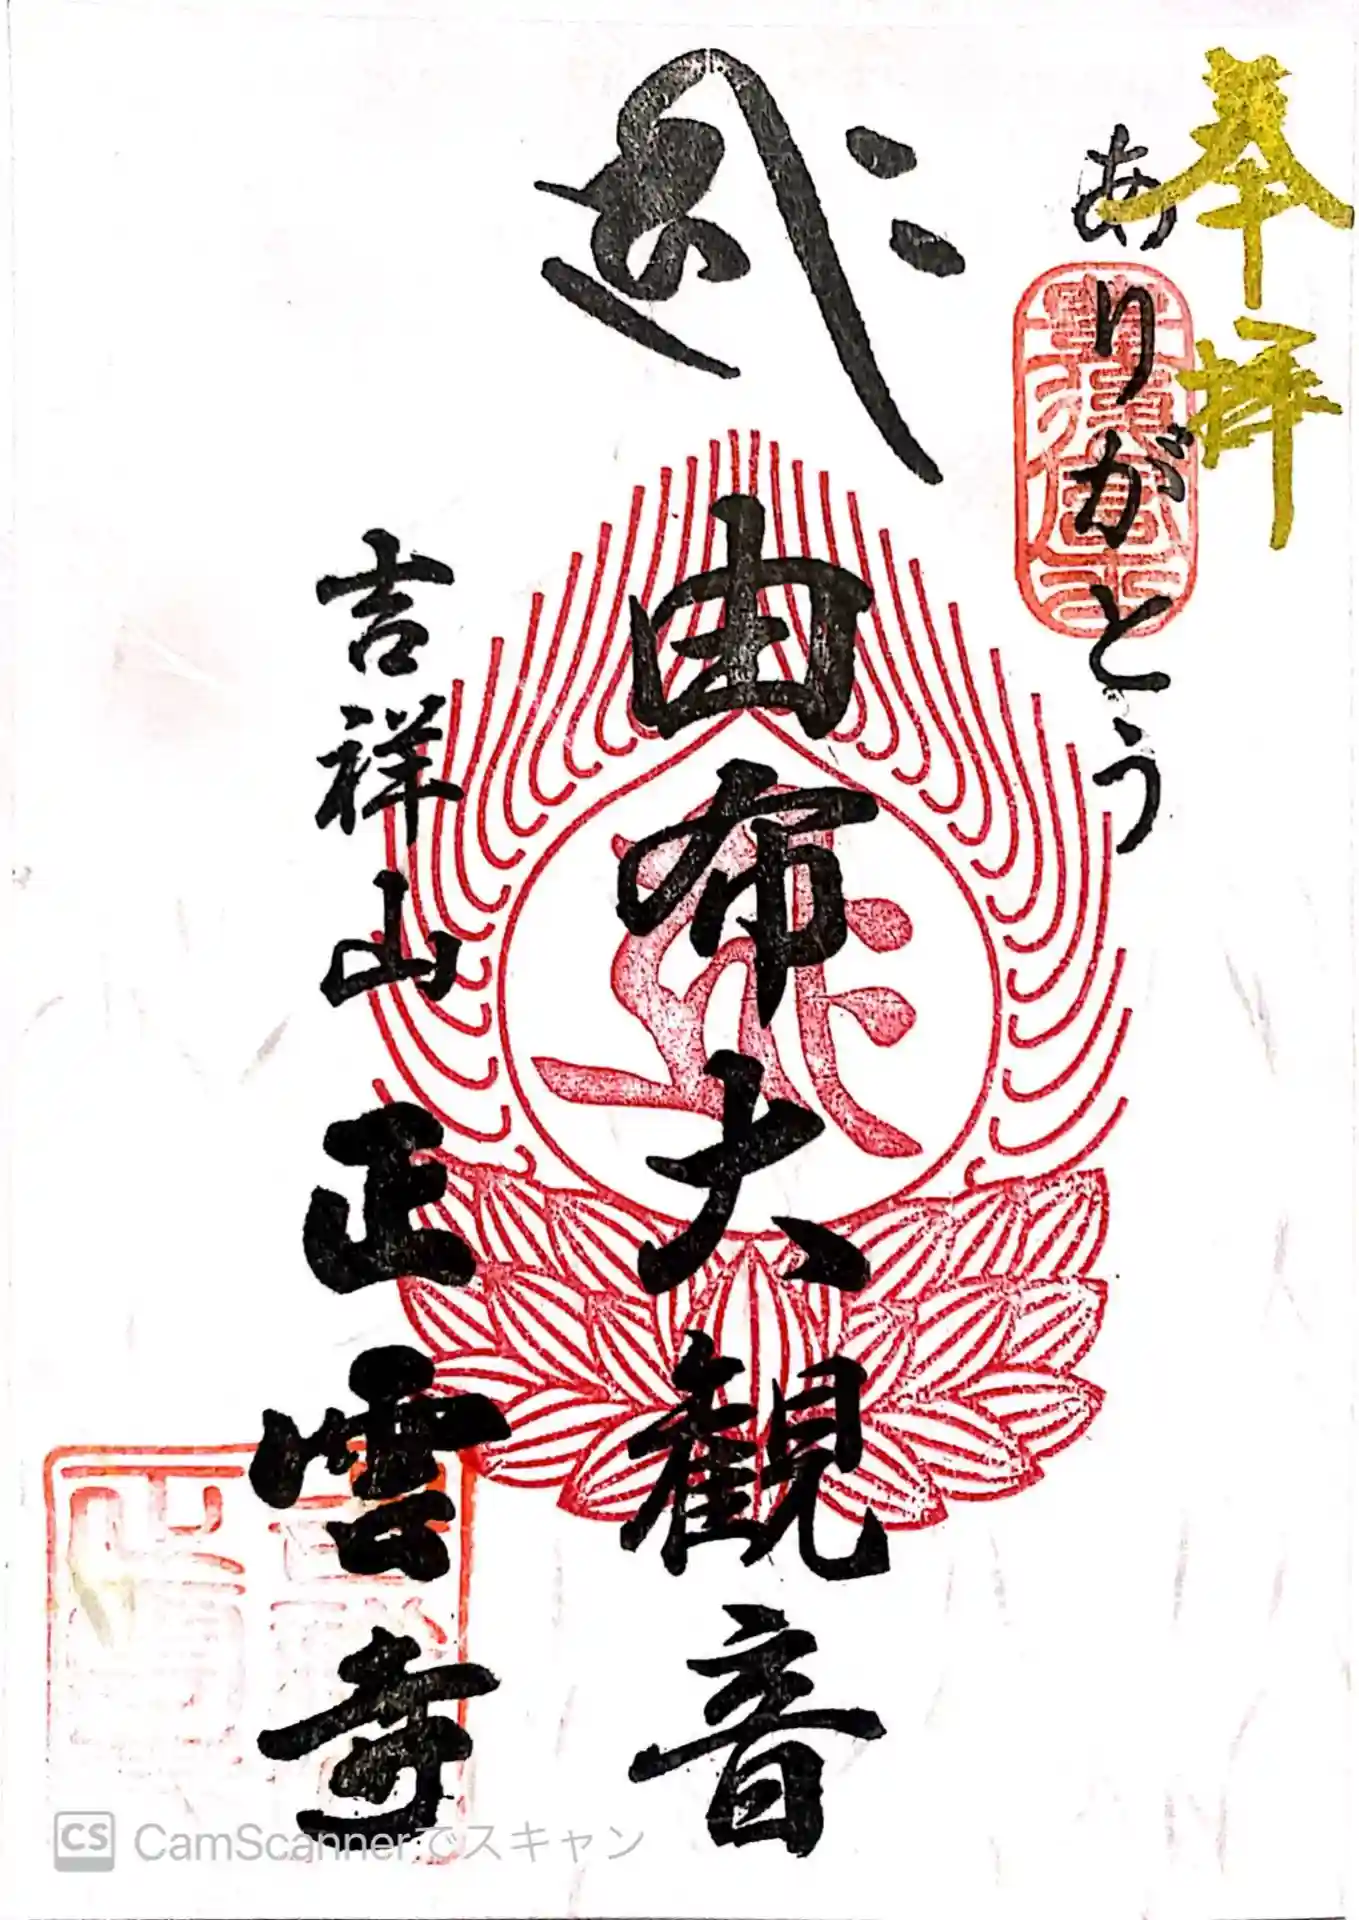 奉拝
ありがとう
由布大観音
吉祥山 正雲寺
CS CamScannerでスキャン